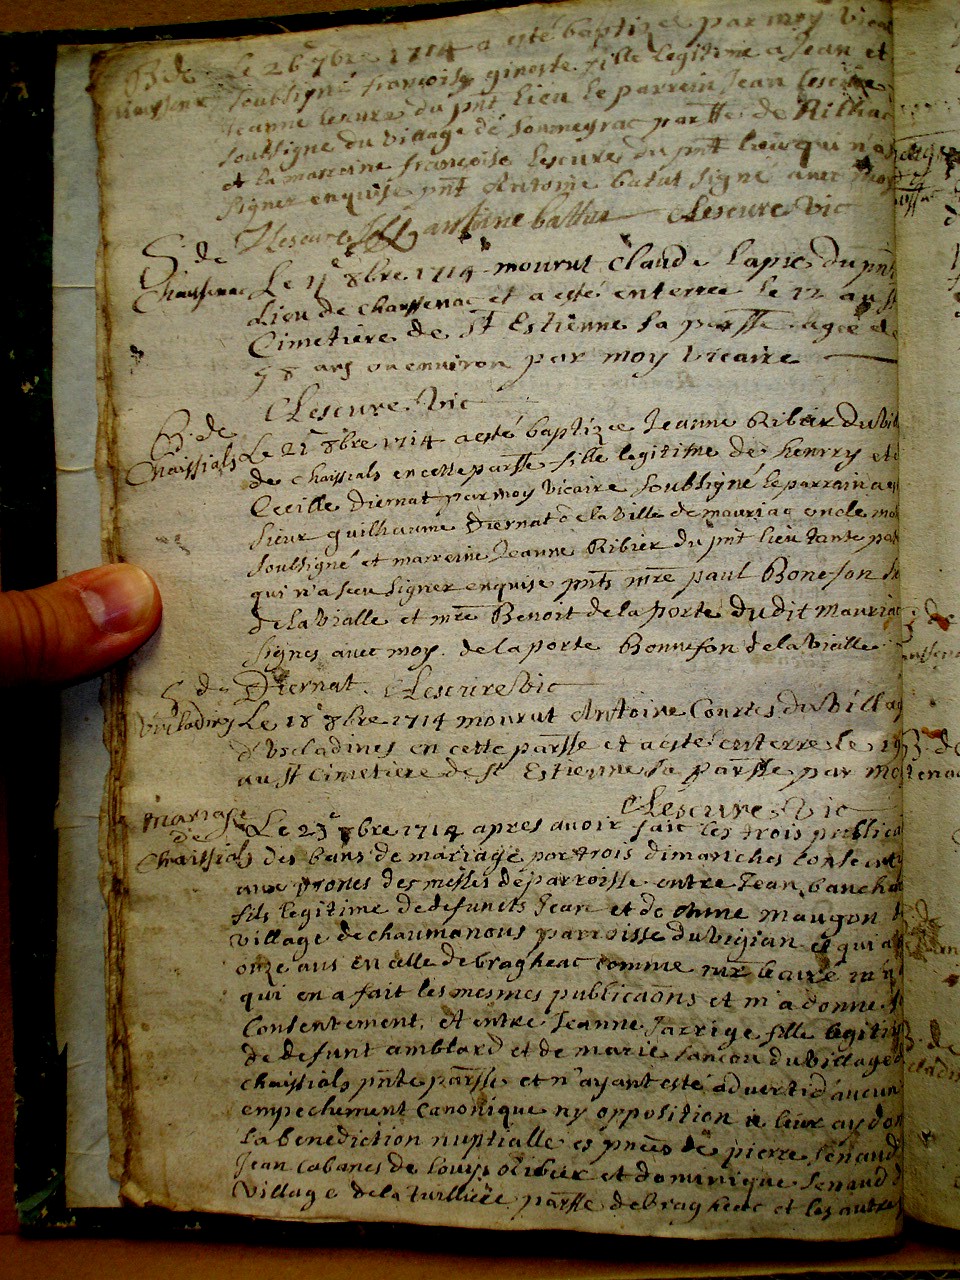 B. de Le 26 7bre 1714 a esté baptizee par moy vicai
soubsigné françoise ginoste fille legitime a Jean et
Jeanne lescure du pnt lieu le parrein Jean lescure
soubsigne du village de Sommeyrac parsse de Rilhac
et la marreine françoise lescure du pnt lieu qui n'a
signer enquise pnt Antoine batut signe avec moy
J Lescure antoine battut Lescure Vic
S. de
Chaussenac Le 11e 8bre 1714 mourut Claude Lapie du pnt
Lieu de chaussenac et a esté enterree le 12 au St
Cimetiere de St Estienne sa parsse agee de
58 ans ou environ par moy Vicaire
Lescure Vic
B. de
Chaissials Le 21e 8bre 1714 a esté baptizee Jeanne Ribier du vil
de chaissials en cette parsse fille legitime de henrry et
Cecille Diernat par moy vicaire soubsigné le parrain a
sieur guilhaume Diernat de la ville de mauriac oncle
soubsigné et marreine Jeanne Ribier du pnt lieu tante
qui n'a sceu signer enquise pnts mre paul Bonefon
de la Vialle et mre Benoit de la porte du dit mauriac
signes avec moy. de la porte Bonnefon de la Vialle
Diernat. Lescure Vic
S. de
Vreladines Le 18e 8bre 1714 mourut Antoine Courtes du Villag
d'Vreladines en cette parsse et a esté enterre le 19
au St Cimetiere de St Estienne sa parsse par mo
Lescure Vic
mariage
de
Chaissials Le 23e 8bre 1714 apres avoir fait les trois publica
des bans de mariage par trois dimanches consecuti
aux prones des messes de parroisse entre Jean bancha
fils legitime de defuncts Jean et de Anne maugon
village de chaumanous parroisse du vigian et qui a
onze ans en celle de bragheac comme mr le curé m'
qui en a fait les mesmes publicaons et m'a donné
Consentement, et entre Jeanne Jarrige fille legitim
de defunt amblard et de marie sancou du village
chaissials pnte parsse et n'ayant esté advertid'aucun
empechement canonique ny opposition je leur ay don
la benediction nuptialle es pnces de pierre senaud
Jean Cabanes de Louys Ribier et dominique senaud
Village de la Tuilliere parsse de bragheac et les autres